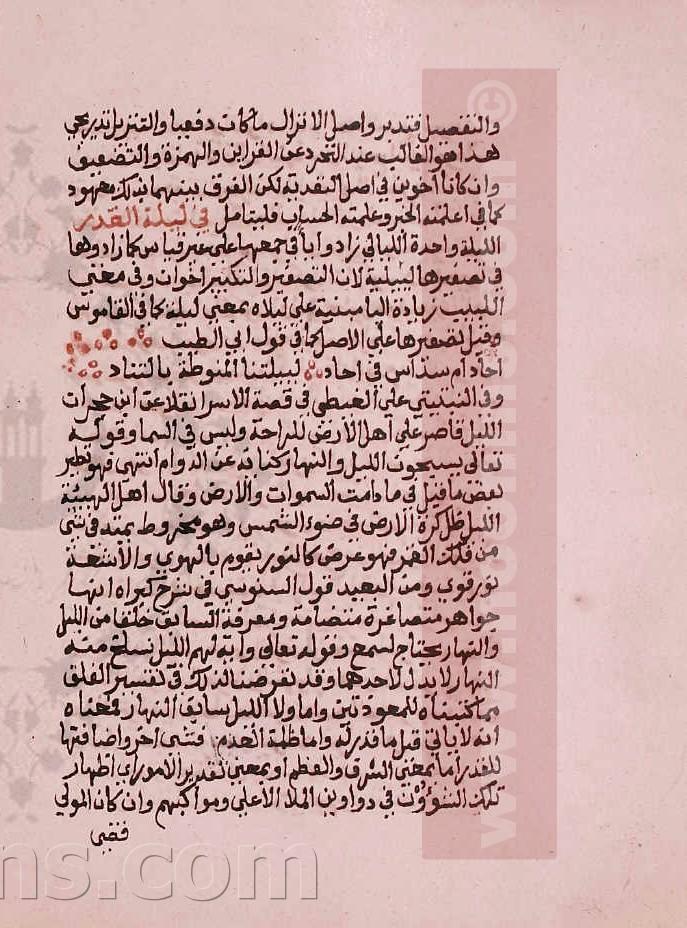 والتفصيل فتدبر واصل الانزال ما كان دفعيا والتنزيل تدريجي
هذا هو الغالب عند التجرد عن القراين والهمزة والتضعيف
وان كانا اخوين في اصل التعدية لكن الفرق بينهما بذلك معهود
كما في اعلمته الخبر وعلمته الحساب فليتامل في ليلة القدر
الليلة واحدة الليالي زادوا يا في جمعها على غير قياس كما زادوها
في تصغيرها لييلية لان التصغير والتكبير اخوان وفي مغني
اللبيب زيادة اليا مبنية على ليلاه بمعني ليلة كما في القاموس
وقيل تصغيرها على الاصل كما في قول ابي الطيب
احاد ام سداس في احاد لييلتنا المنوطة بالتناد
وفي الشبيتي على الغيطي في قصة الاسرا نقلا عن ابن حجر ان
الليل قاصر على اهل الارض للراحة وليس في السما وقوله
تعالى يسبحون الليل والنهار كناية عن الدوام انتهى فهو نظير
بعض ما قيل في ما دامت السموات والارض وقال اهل الهيئة
الليل ظل كرة الارض في ضوء الشمس وهو مخروط يمتد في شي
من فلك القمر فهو عرض كالنور يقوم بالهوي والاشعة
نور قوي ومن البعيد قول السنوسي في شرح كبراه انها
جواهر متصاغرة متضامة ومعرفة السابق خلقا من الليل
والنهار يحتاج لسمع وقوله تعالى واية لهم الليل نسلخ منه
النهار لا يدل لاحدهما وقد تعرضنا لذلك في تفسير الفلق
مما كتبناه للمعوذتين واما ولا الليل سابق النهار فمعناه
انه لا ياتي قبل ما قدر له واما ظلمة العدم فشي اخر واضافتها
للقدر اما بمعني الشرف والعظم او بمعني تقدير الامور اي اظهار
تلك الشؤون في دواوين الملا الاعلى ومواكبهم وان كان المولي
فقي
www.nooonline
©
ns.com